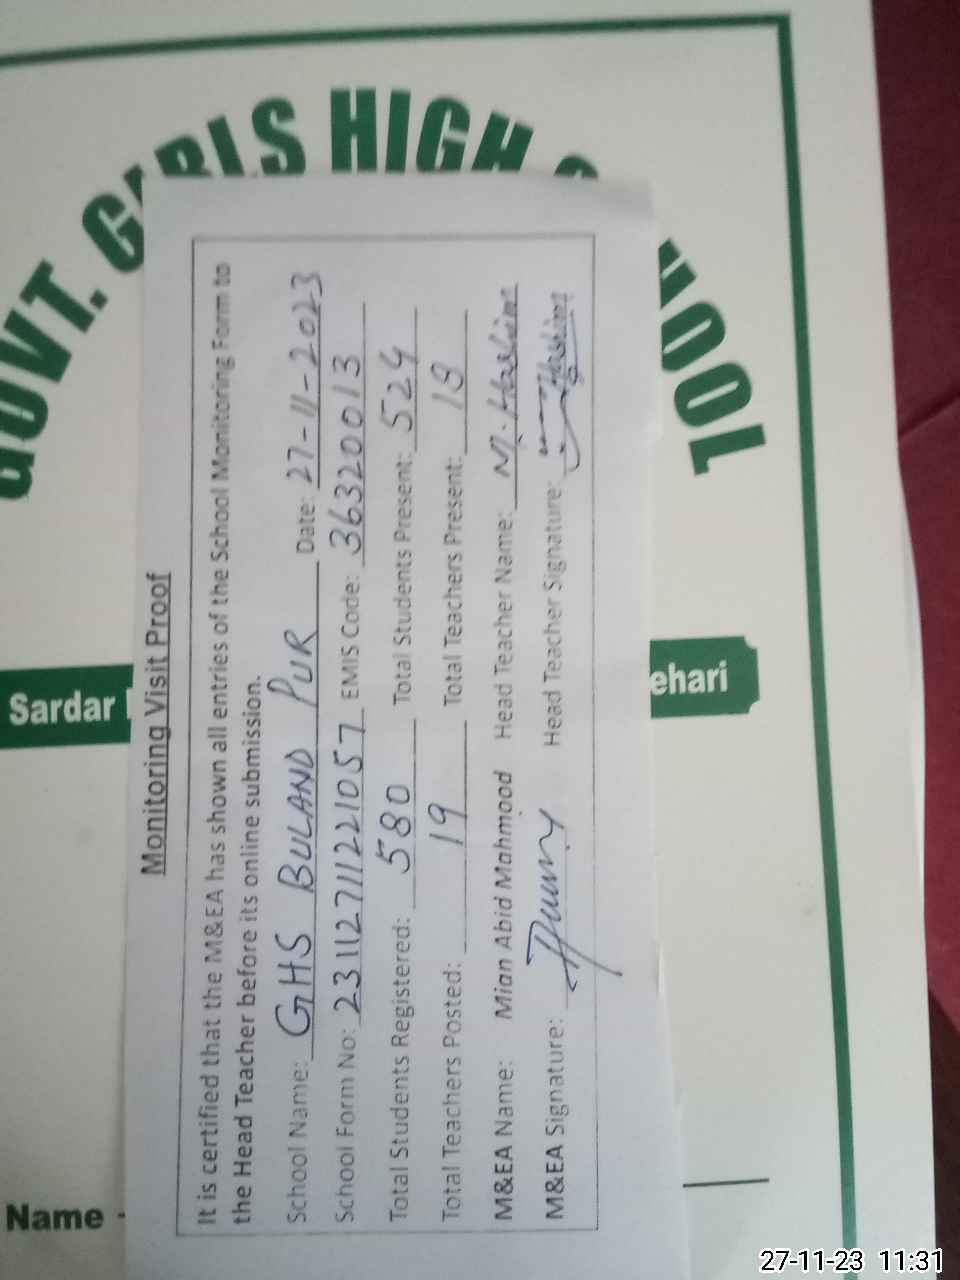 GOVT. GIRLS HIGH SCHOOL
Sardar
ehari
Name -
Monitoring Visit Proof
It is certified that the M&EA has shown all entries of the School Monitoring Form to
the Head Teacher before its online submission.
School Name: GHS BULAND PUR Date: 27-11-2023
School Form No: 231127111221057 EMIS Code: 36320013
Total Students Registered: 580 Total Students Present: 524
Total Teachers Posted: 19 Total Teachers Present: 18
M&EA Name: Mian Abid Mahmood Head Teacher Name: M. Hashim
M&EA Signature: Head Teacher Signature: Hashim
27-11-23 11:31